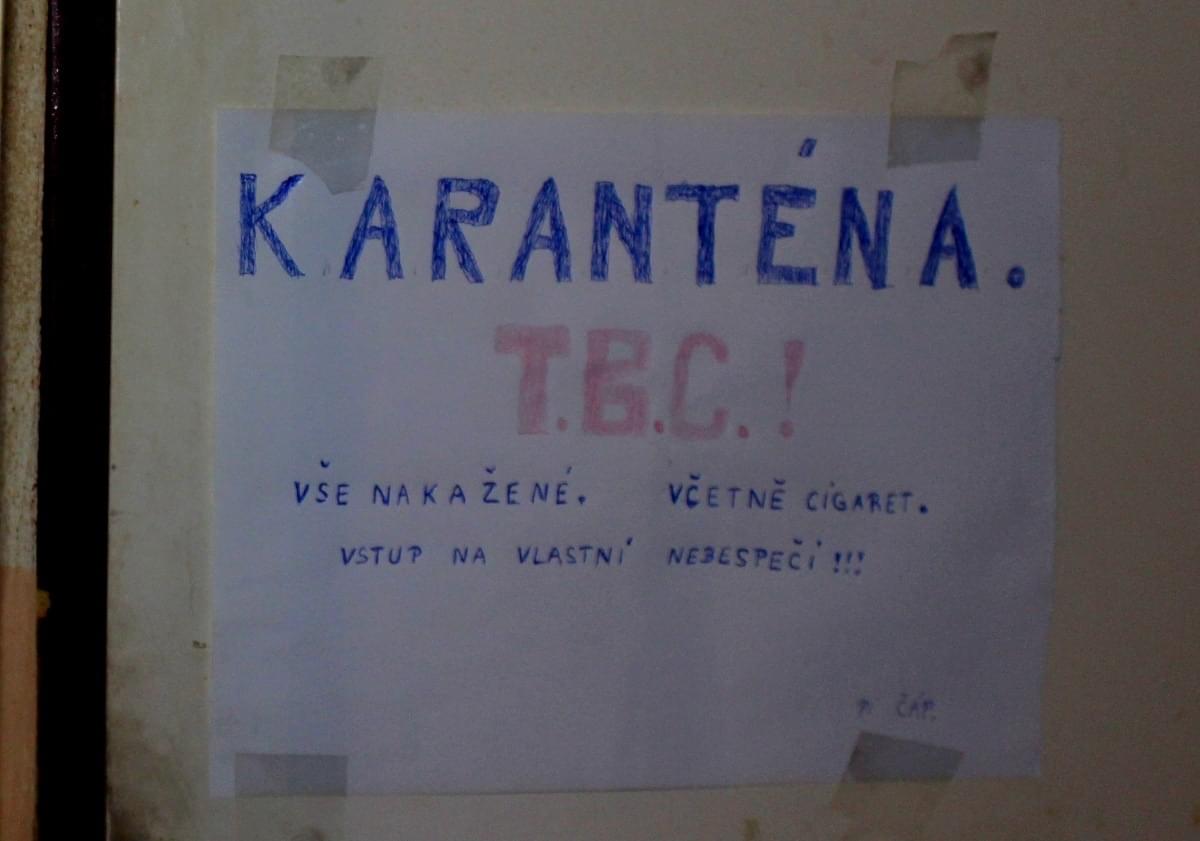 KARANTÉNA.
T.B.C.!
VŠE NAKAŽENÉ. VČETNĚ CIGARET.
VSTUP NA VLASTNÍ NEBESPEČÍ!!!
ČÁP.